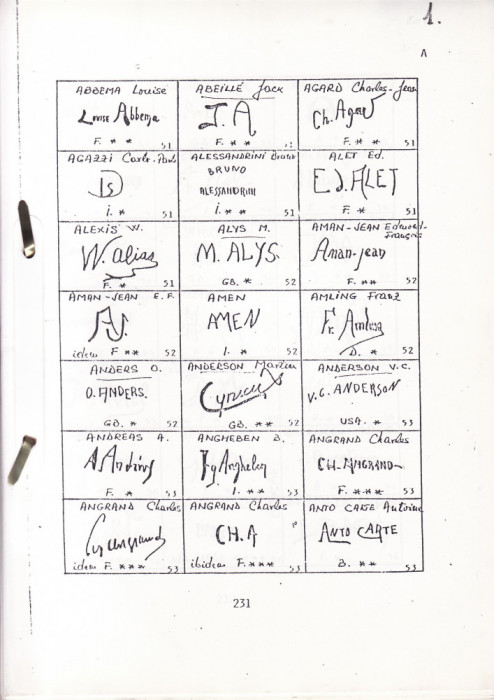 1.
A
ABBEMA Louise
Louise Abbema
F. * * 51
ABEILLÉ Jack
J. A
F. * *
AGARD Charles-Jean
Ch. Agard
F. * * 51
AGAZZI Carlo-Paolo
i. * 51
ALESSANDRINI Bruno
BRUNO
ALESSANDRINI
i. * * 51
ALET Ed.
ED. ALET
F. * 51
ALEXIS W.
F. * 51
ALYS M.
M. ALYS.
GB. * 52
AMAN-JEAN Edmond-
François
Aman-jean
F. * * 52
AMAN-JEAN E.F.
AJ.
idem F * * 52
AMEN
AMEN
I. * 52
AMLING Franz
Fr. Amling
D. * 52
ANDERS O.
O. ANDERS.
GB. * 52
ANDERSON
GB. * * 52
ANDERSON V.C.
V.C. ANDERSON
USA. * 53
ANDREAS A.
F. * 53
ANGHEBEN B.
Angheben
I. * * 53
ANGRAND Charles
CH. ANGRAND
F. * * * 53
ANGRAND Charles
angrand
idem F. * * * 53
ANGRAND Charles
CH. A
ibidem F. * * * 53
ANTO CARTE Antoine
ANTO CARTE
B. * * 53
231